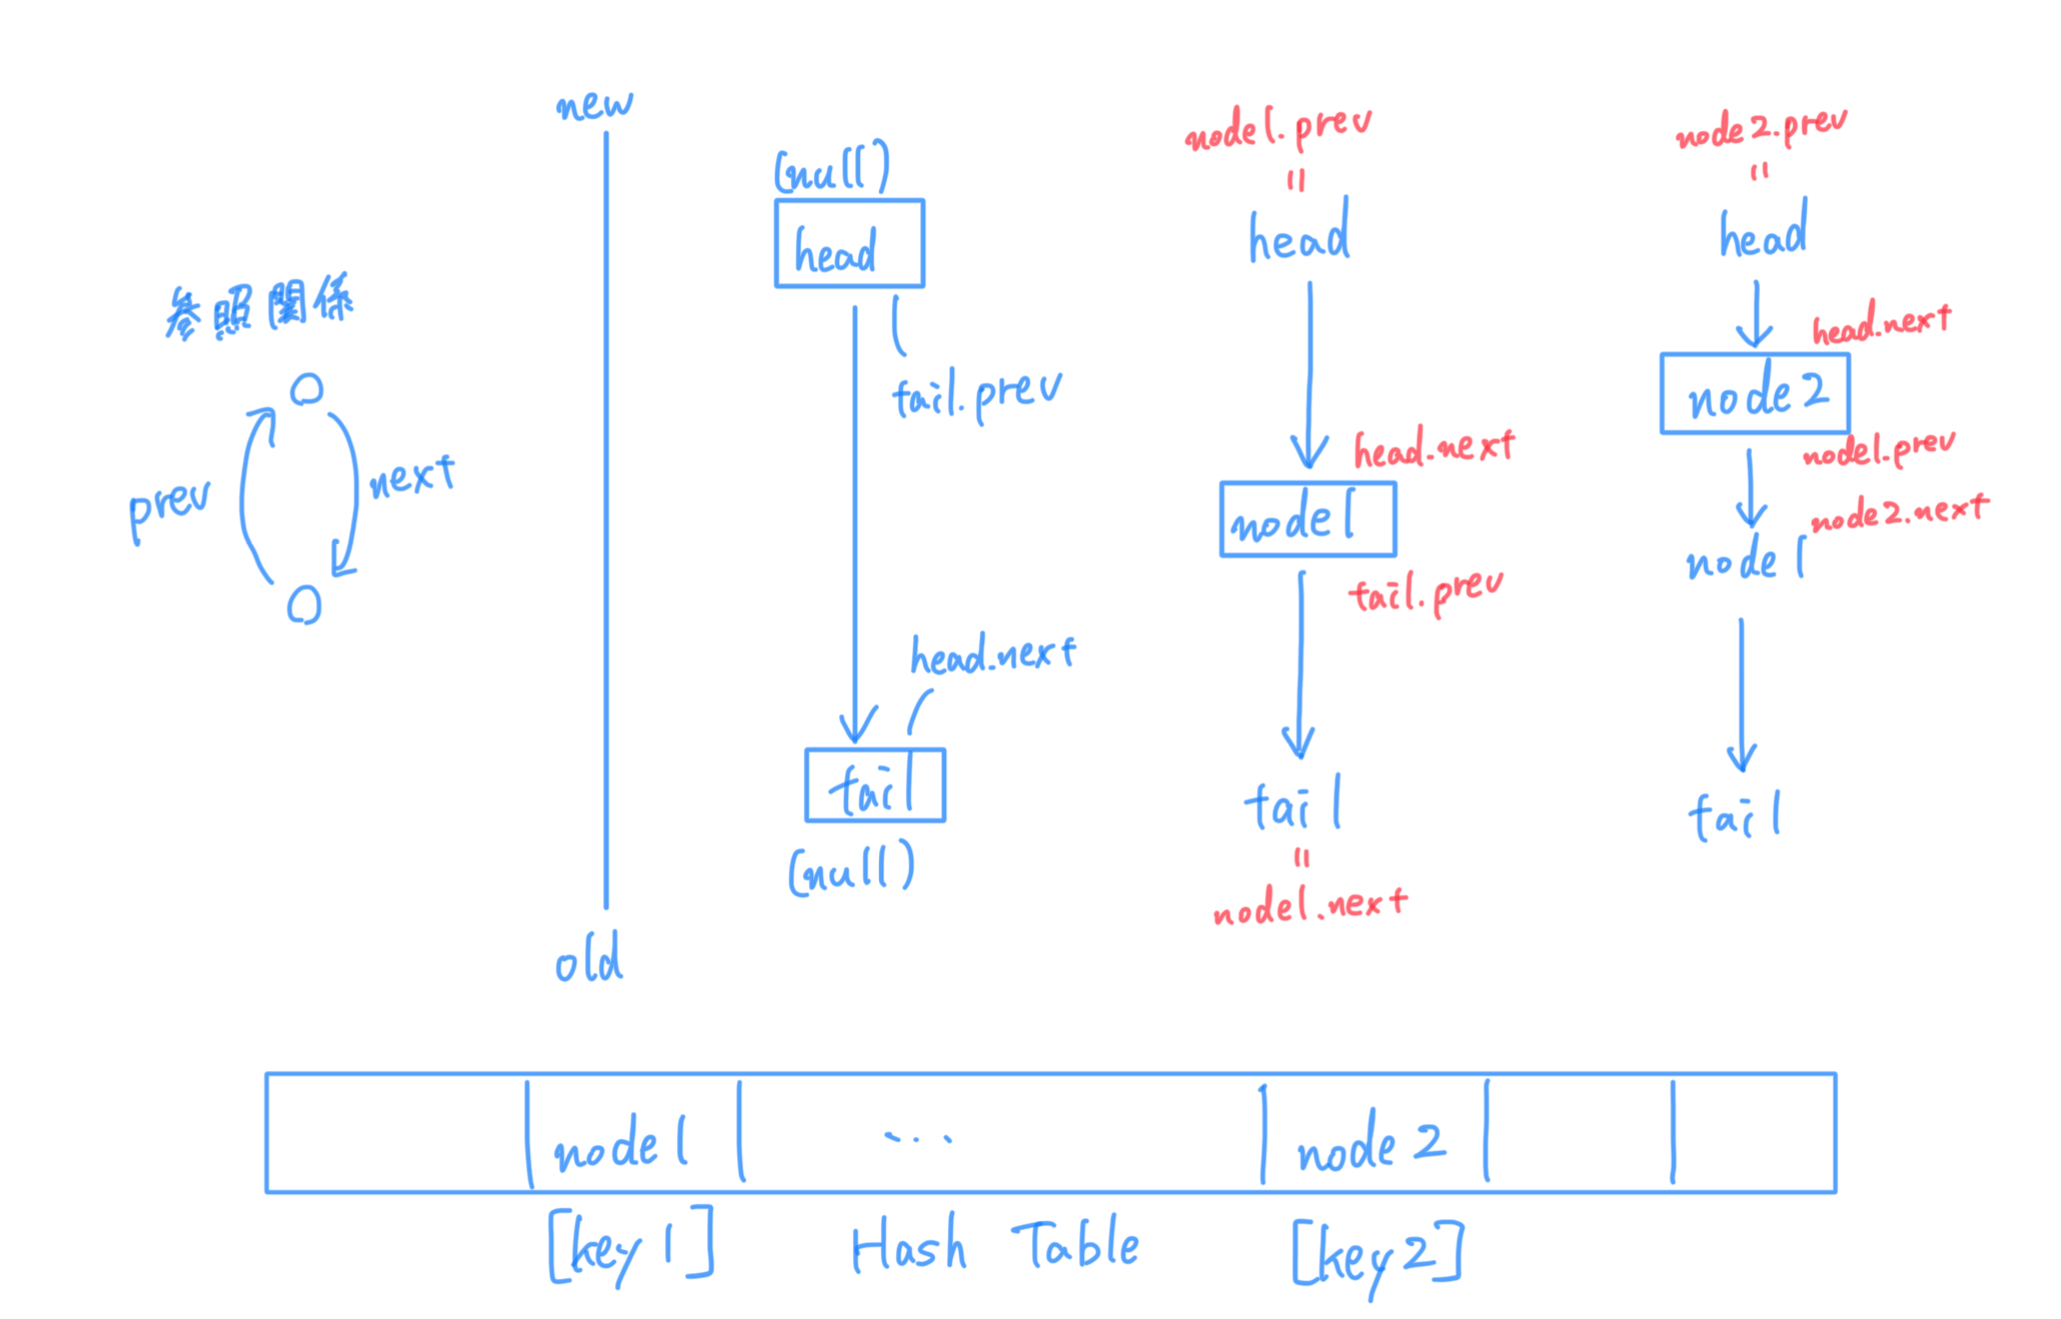 参照関係
prev
next
new
old
(null)
head
tail.prev
head.next
tail
(null)
node1.prev
=
head
head.next
node1
tail.prev
tail
=
node1.next
node2.prev
=
head
head.next
node2
node1.prev
node2.next
node1
tail
node1 ... node2
[key1] Hash Table [key2]